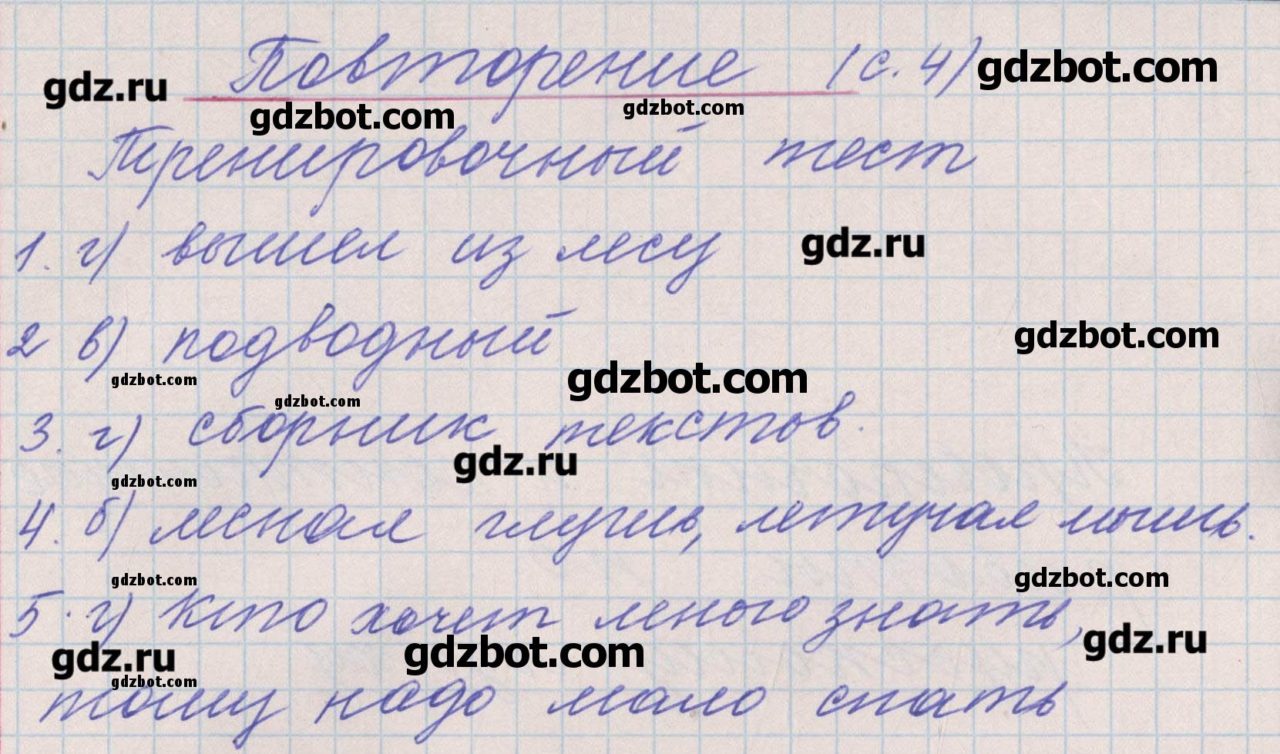 Повторение (с. 4) gdzbot.com
gdz.ru
gdzbot.com gdzbot.com
Тренировочный тест
1. г) вышел из лесу gdz.ru
2 в) подводный gdzbot.com
gdzbot.com gdzbot.com
gdzbot.com
3. г) сборник текстов.
gdz.ru
gdzbot.com
4. б) лесная глушь, летучая мышь.
gdzbot.com gdzbot.com
5. г) Кто хочет много знать,
gdz.ru gdzbot.com gdz.ru
gdzbot.com
тому надо мало спать